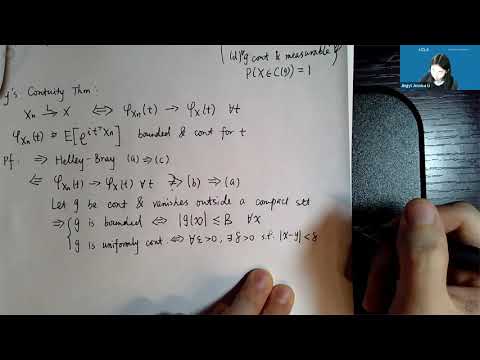 (d) g cont & measurable
P(X∈C(g)) = 1
y's Contuity Thm:
Xn →L X ⇔ φ_Xn(t) → φ_X(t) ∀t
φ_Xn(t) = E[e^{it^T Xn}] bounded & cont for t
Pf: ⇒ Helley-Bray (a) ⇒ (c)
⇐ φ_Xn(t) → φ_X(t) ∀t ⇒ (b) ⇒ (a)
Let g be cont & vanishes outside a compact set
⇒ { g is bounded ⇔ |g(x)| ≤ B ∀x
g is uniformly cont. ⇔ ∀ε>0, ∃δ>0 s.t. |x-y|<δ
UCLA
Jingyi Jessica Li